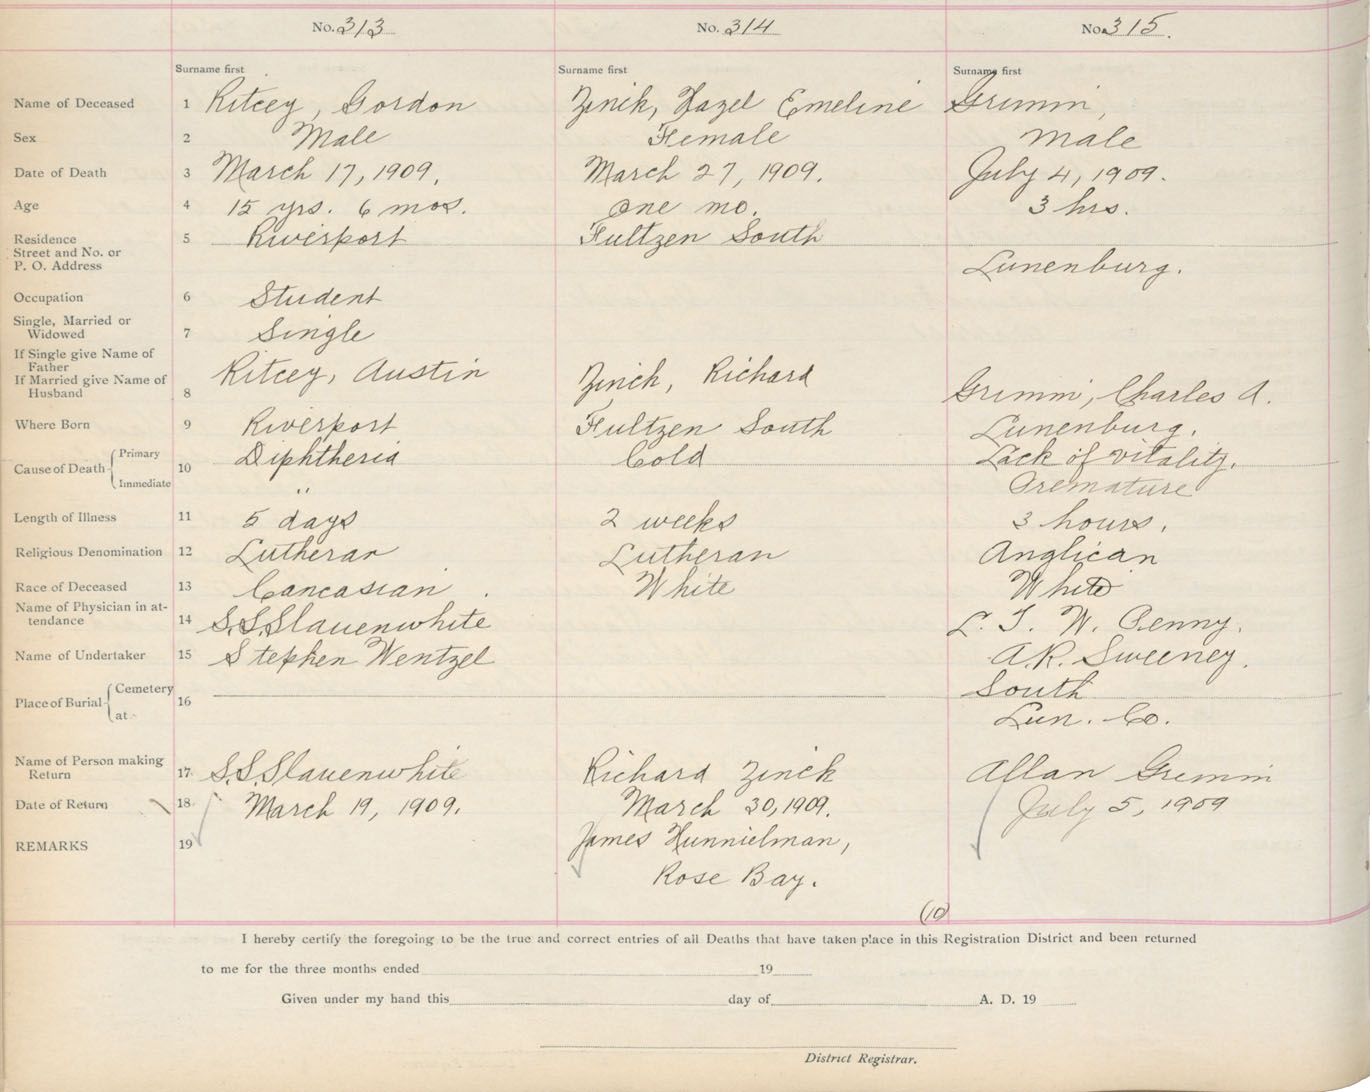 No. 313 No. 314 No. 315.
Surname first Surname first Surname first
Name of Deceased 1 Ritcey, Gordon Zinik, Hazel Emeline Grimm,
Sex 2 Male Female Male
Date of Death 3 March 17, 1909. March 27, 1909. July 4, 1909.
Age 4 15 yrs. 6 mos. One mo. 3 hrs.
Residence 5 Riverport Fultzen South
Street and No. or
P. O. Address Lunenburg.
Occupation 6 Student
Single, Married or
Widowed 7 Single
If Single give Name of
Father Ritcey, Austin Zinck, Richard
If Married give Name of
Husband 8 Grimm, Charles A.
Where Born 9 Riverport Fultzen South Lunenburg.
Cause of Death Primary 10 Diphtheria Cold Lack of vitality.
Immediate " Premature
Length of Illness 11 5 days 2 weeks 3 hours.
Religious Denomination 12 Lutheran Lutheran Anglican
Race of Deceased 13 Cancasian White White
Name of Physician in at-
tendance 14 S.S. Slauenwhite L. T. W. Penny.
Name of Undertaker 15 Stephen Wentzel A.R. Sweeney.
Place of Burial Cemetery 16 South
at Lun. Co.
Name of Person making
Return 17 S.S. Slauenwhite Richard Zinck Allan Grimm
Date of Return 18 March 19, 1909. March 30, 1909. July 5, 1909
REMARKS 19 James Hunnielman,
Rose Bay.
(10)
I hereby certify the foregoing to be the true and correct entries of all Deaths that have taken place in this Registration District and been returned
to me for the three months ended 19
Given under my hand this day of A. D. 19
District Registrar.